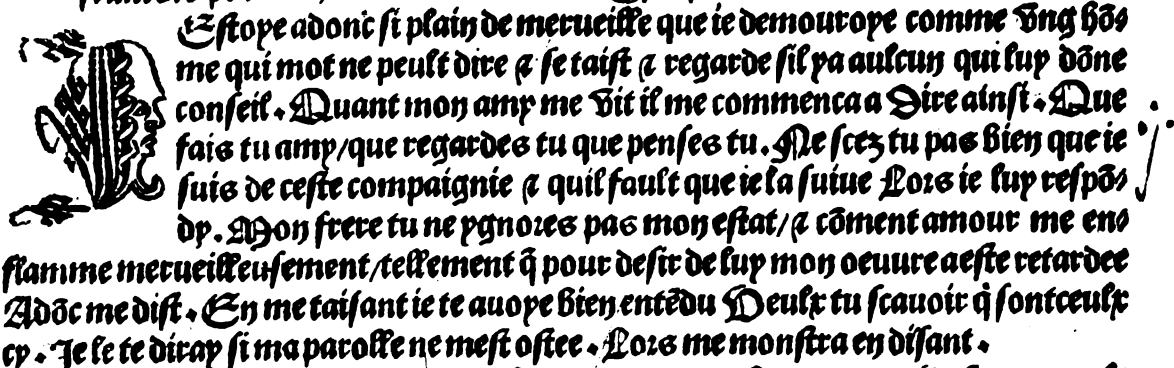 IEstoye adonc si plain de merueille que ie demouroye comme vng hõ-
me qui mot ne peult dire & se taist & regarde sil ya aulcun qui luy dõne
conseil. Quant mon amy me vit il me commenca a Dire ainsi. Que
fais tu amy/que regardes tu que penses tu. Ne scez tu pas bien que ie
suis de ceste compaignie & quil fault que ie la suiue Lors ie luy respõ-
dy. Mon frere tu ne ygnores pas mon estat/& cõment amour me en-
flamme merueilleusement/tellement q̃ pour desir de luy mon oeuure a este retardee
Adõc me dist. En me taisant ie te auoye bien entẽdu Veulx tu scauoir q̃ sont ceulx
cy. Je le te diray si ma parolle ne mest ostee. Lors me monstra en disant.